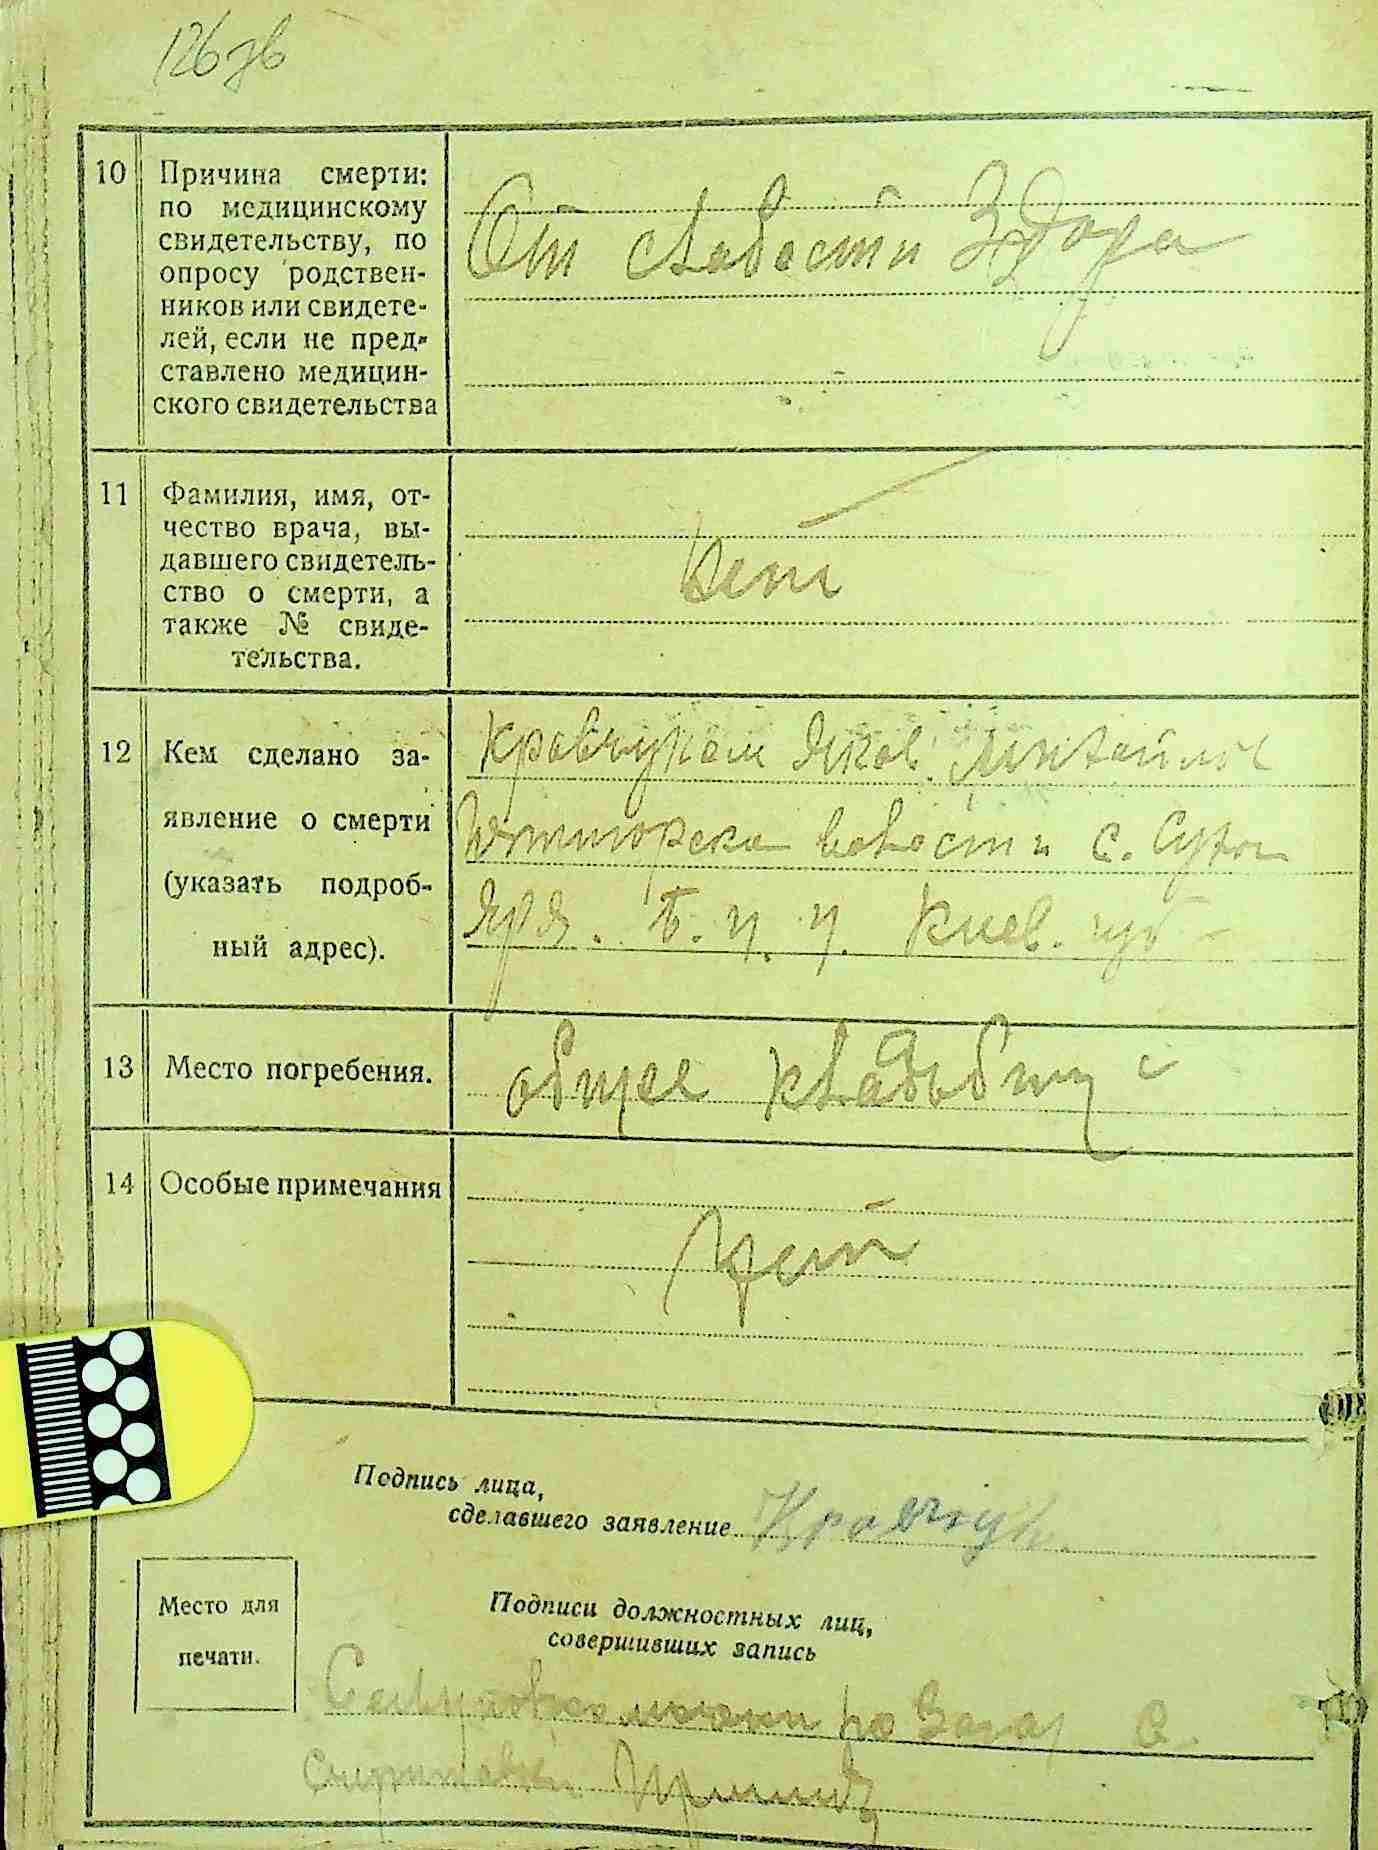 126 зв
10 Причина смерти:
по медицинскому
свидетельству, по
опросу родствен-
ников или свидете-
лей, если не пред-
ставлено медицин-
ского свидетельства
От слабости Здоров
11 Фамилия, имя, от-
чество врача, вы-
давшего свидетель-
ство о смерти, а
также № свиде-
тельства.
Нет
12 Кем сделано за-
явление о смерти
(указать подроб-
ный адрес).
Кравчуком Яков. Михайлов
волости с.
Б. Ц. У. Киев. губ
13 Место погребения.
общее кладбищ
14 Особые примечания
Нет
Подпись лица,
сделавшего заявление Кравчук
Место для
печати.
Подписи должностных лиц,
совершивших запись
по Загс с